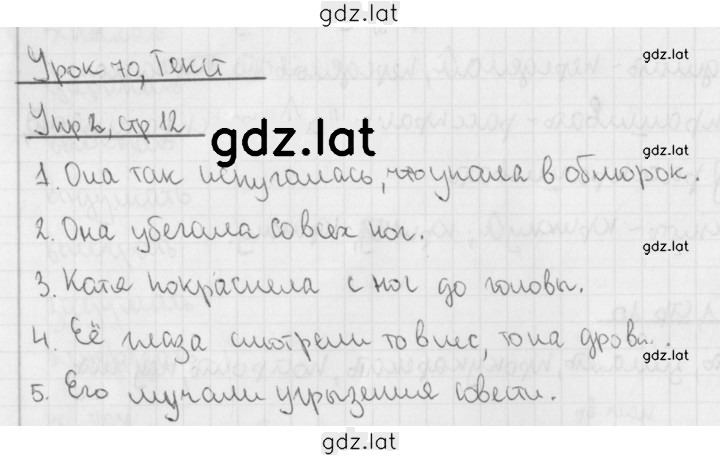 gdz.lat
gdz.lat
Урок 70, Текст
Упр 2, стр 12
gdz.lat
gdz.lat
1. Она так испугалась, что упала в обморок.
2. Она убегала со всех ног.
gdz.lat
3. Катя покраснела с ног до головы.
4. Её глаза смотрели то в лес, то на дрова.
gdz.lat
5. Его мучали угрызения совести.
gdz.lat